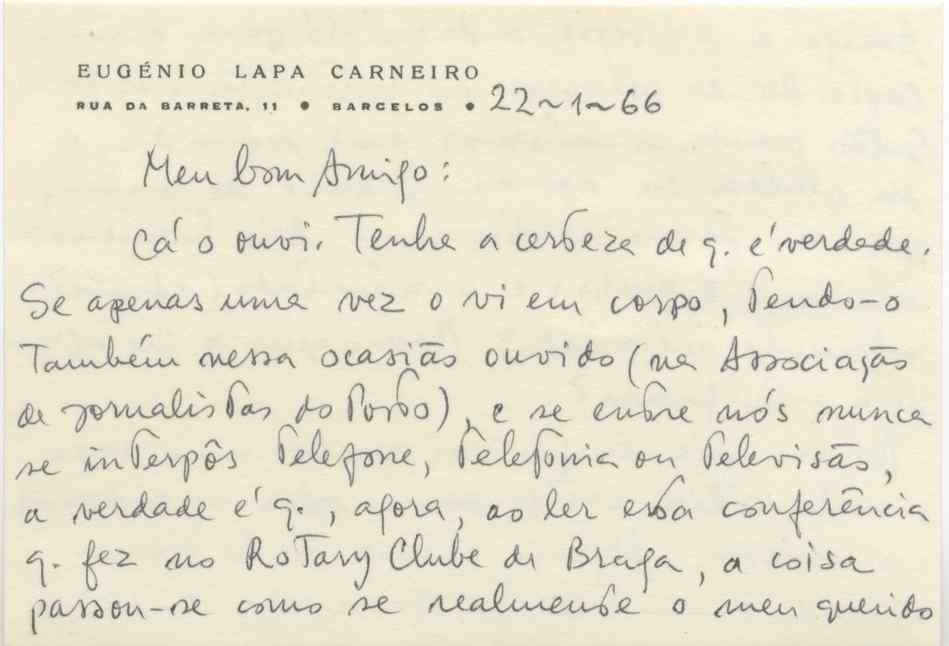 EUGÉNIO LAPA CARNEIRO
RUA DA BARRETA, 11 ● BARCELOS ● 22~1~66
Meu bom Amigo:
Cá o ouvi. Tenha a certeza de q. é verdade.
Se apenas uma vez o vi em corpo, tendo-o
também nessa ocasião ouvido (na Associação
de jornalistas do Porto), e se entre nós nunca
se interpôs telefone, telefonia ou televisão,
a verdade é q., agora, ao ler essa conferência
q. fez no Rotary Clube de Braga, a coisa
passou-se como se realmente o meu querido